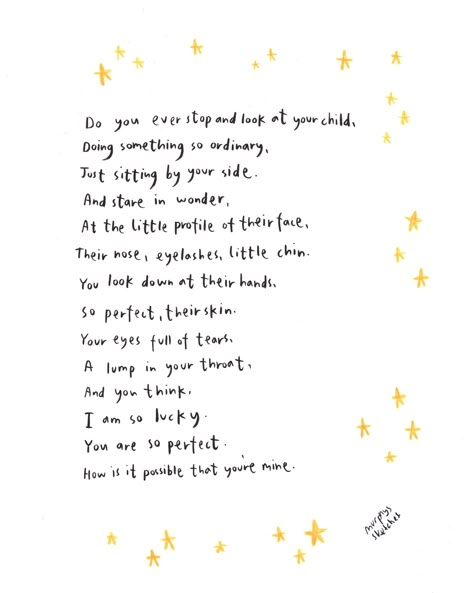 Do you ever stop and look at your child,
Doing something so ordinary,
Just sitting by your side.
And stare in wonder,
At the little profile of their face,
Their nose, eyelashes, little chin.
You look down at their hands,
So perfect, their skin.
Your eyes full of tears,
A lump in your throat,
And you think,
I am so lucky.
You are so perfect.
How is it possible that you're mine.
murphys
sketches